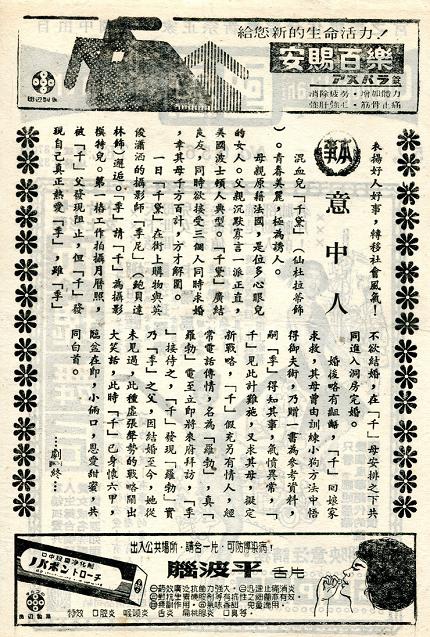 給您新的生命活力!
安賜百樂
アスパラ錠
消除疲勞・增加體力
強肝強心・筋骨止痛
田辺製薬
表揚好人好事,轉移社會風氣!
本事
意中人
混血兒「千黛」(仙杜拉蒂飾
)。青春美麗,極為誘人。
母親原籍法國,是位多心眼兒
的女人。父親沉默寡言一派正直,
美國波士頓人典型。「千黛」廣結
良友,同時欲接受三個人同時求婚
,幸其母千方百計,方才解圍。
一日「千黛」在街上購物與英
俊瀟洒的攝影師「李尼」(鮑貝達
林飾)邂逅。「李」請「千」為攝影
模特兒。第一樁工作拍攝月曆照,
被「千」父發現阻止,但「千」發
現自己真正熱愛「李」,雖「李」
不欲結婚,在「千」母安排之下共
同進入洞房完婚。
婚後略有齟齬,「千」回娘家
求救,其母曾由訓練小狗方法中悟
得御夫術,乃贈一書為參考資料,
嗣「李」得知其事,氣憤異常,「
千」見此計難施,又求其母,擬定
新戰略,「千」假充另有情人,經
常電話傳情,名為「羅勃」,真「
羅勃」電至立即將來府拜訪,「李
」接待之,「千」發現「羅勃」實
乃「李」之父,因結婚至今,她從
未見過,此種虛張聲勢的戰略鬧出
大笑話,此時「千」已身懷六甲,
臨盆在即,小倆口,恩愛甜蜜,共
同白首。
……劇終……
出入公共場所,請含一片,可防傳染病!
口中殺菌淨化劑
ノバポン トローチ
腦波平 舌片
特效 口腔炎 咽喉炎 舌炎 扁桃腺炎 口臭等.